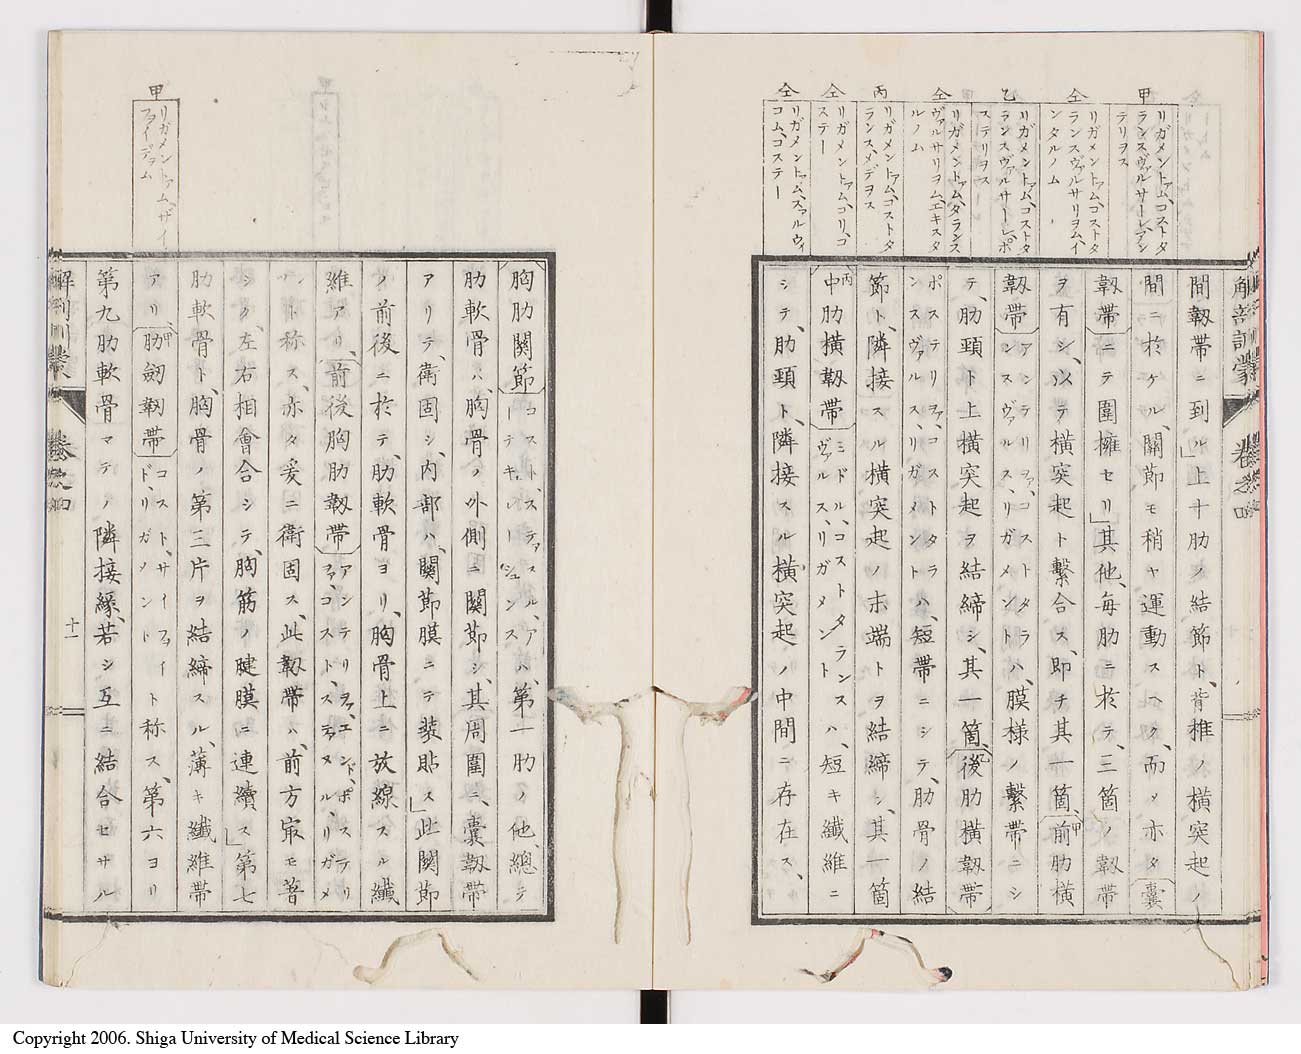 解剖訓蒙
卷之四
甲
リガメントァム、コストタ
ランスヴァルサーレ、アン
テリヲス
仝
リガメントァム、コストタ
ランスヴァルサリヲム、イ
ンタルノム
乙
リガメントァム、コストタ
ランスヴァルサーレ、ポ
ステリヲス
仝
リガメントァム、タランス
ヴァルサリヲム、エキスタ
ルノム
丙
リガメントァム、コストタ
ランス、メデヲス
仝
リガメントァム、コリ、コ
ステー
仝
リガメントァム、スァルウィ
コム、コステー
間韌帶ニ到ル」上サ肋ノ結節ト、背推ノ橫突起ノ
間ニ於ケル、關節モ稍ャ運動スヘク、而ノ亦タ囊
韌帶ニテ圍擁セリ」其他、每肋ニ於テ、三箇ノ韌帶
ヲ有シ、以テ橫突起ト繫合ス、即チ其一箇、前肋橫
韌帶アンテリヲァ、コストタラ
ンスヴァルス、リガメントハ、膜樣ノ繫帶ニシ
テ、肋頸ト上橫突起ヲ結締シ、其一箇、後肋橫韌帶
ポステリヲァ、コストタラ
ンスヴァルス、リガメントハ、短帶ニシテ、肋骨ノ結
節ト、隣接スル橫突起ノ末端トヲ結締シ、其一箇
中肋橫韌帶ミドル、コストタランス
ヴァルス、リガメントハ、短キ纖維ニ
シテ、肋頸ト、隣接スル橫突起ノ中間ニ存在ス、
甲
リガメントァム、ザイ
フヲイデァム
胸肋關節コストステァルル、アル
テキュレーシュンスハ、第一肋ノ他、總テ
肋軟骨ハ、胸骨ノ外側ニ關節シ、其周圍ニ、囊韌帶
アリテ、衞固シ、內部ハ、關節膜ニテ裝貼ス」此關節
ノ前後ニ於テ、肋軟骨ヨリ、胸骨上ニ放線スル纖
維アリ、前後胸肋韌帶アンテリヲァ、エンド、ポステリ
ヲァ、コスト、ステァヌル、リガメ
ントト称ス、亦タ爰ニ衞固ス、此韌帶ハ、前方㝡モ著
シク、左右相會合シテ、胸筋ノ腱膜ニ連續ス」第七
肋軟骨ト、胸骨ノ第三片ヲ結締スル、薄キ纖維帶
アリ、肋劒韌帶コスト、サイフヲイ
ド、リガメントト称ス、第六ヨリ
第九肋軟骨マテノ隣接緣、若シ互ニ結合セサル
解剖訓蒙
卷之四
十一
Copyright 2006. Shiga University of Medical Science Library